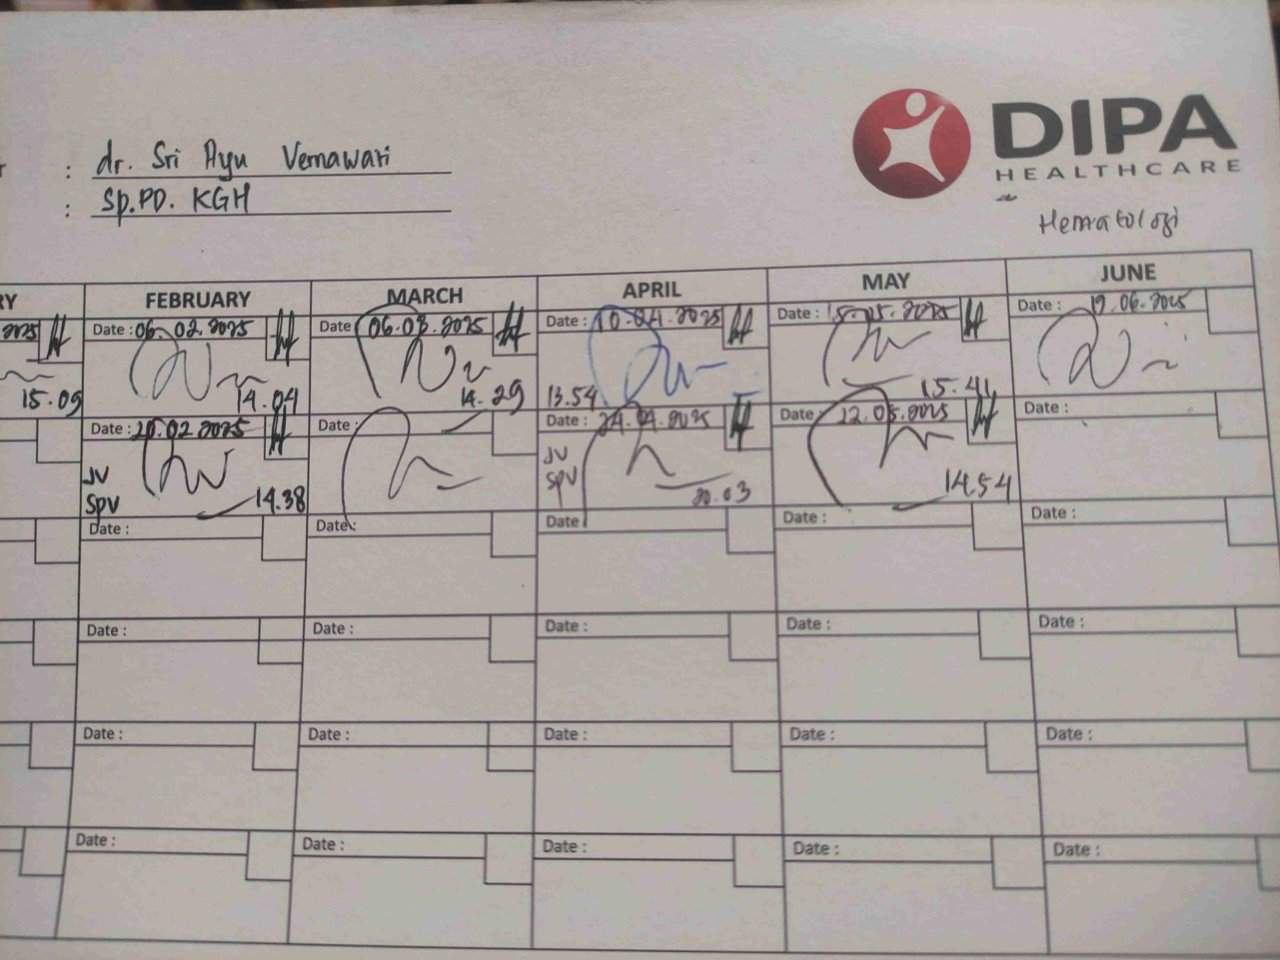 DIPA
HEALTHCARE
Hematologi
: dr. Sri Ayu Vernawati
: Sp.PD. KGH
RY FEBRUARY MARCH APRIL MAY JUNE
2025 Date : 06.02.2025 Date 06.03.2025 Date : 10.04.2025 Date : 15.05.2025 Date : 12.06.2025
15.09 14.04 14.29 13.54 15.41
Date : 20.02.2025 Date : Date : 24.04.2025 Date : 22.05.2025 Date :
JV JV
SPV 14.38 SPV 20.03 14.54
Date : Date : Date Date : Date :
Date : Date : Date : Date : Date :
Date : Date : Date : Date : Date :
Date : Date : Date : Date : Date :